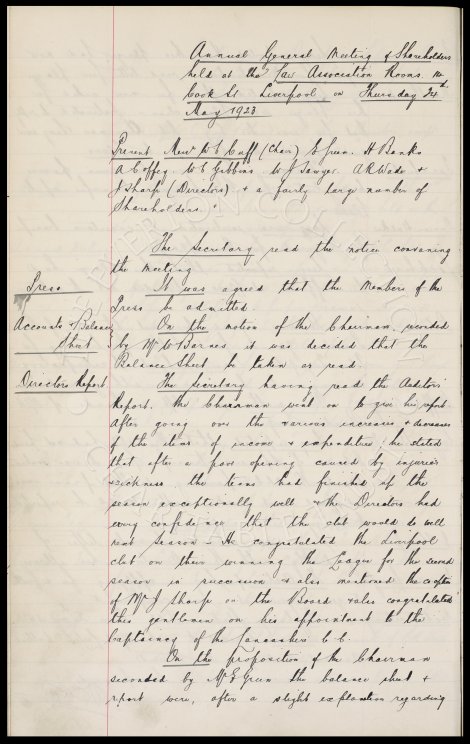 Annual General Meeting of Shareholders
held at the Law Association Rooms 14
Cook St Liverpool on Thursday 24th
May 1923
Present Messrs W C Cuff (Chair) E Green. H Banks
A Coffey. W C Gibbins. W J Sawyer. A R Wade &
J Sharp (Directors) & a fairly large number of
Shareholders.
The Secretary read the notice convening
the meeting
Press
It was agreed that the Members of the
Press be admitted.
Accounts & Balance
Sheet
On the motion of the Chairman, seconded
by Mr W Barnes it was decided that the
Balance Sheet be taken as read.
Directors Report
The Secretary having read the Auditors'
Report. the Chairman went on to give his report.
After going over the various increases & decreases
of the items of income & expenditure, he stated
that after a poor opening caused by injuries
& sickness the team had finished up the
season exceptionally well & the Directors had
every confidence that the club would do well
next season – He congratulated the Liverpool
club on their winning the League for the second
season in succession & also mentioned the
of Mr J Sharp on the Board & also congratulated
this gentleman on his appointment to the
Captaincy of the Lancashire C.C.
On the proposition of the Chairman
seconded by Mr E Green the balance sheet &
report were, after a slight explanation regarding